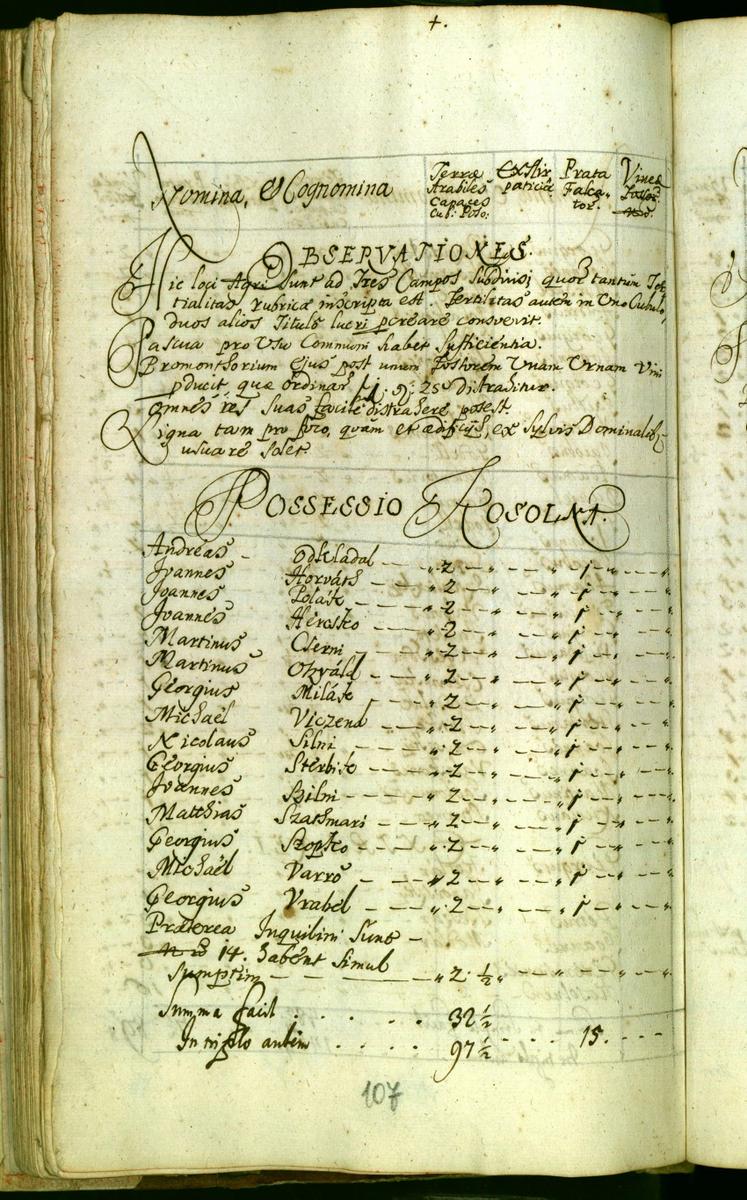 +.
Nomina, et Cognomina
Terræ Arabiles Capaces Cub: Poso:
Exstirpaticiæ
Prata Falcator.
Vineæ Fossor.
OBSERVATIONES.
Hic loci Agri sunt ad Tres Campos subdivisi, quor tantum Ter
tialitas rubricæ inscripta est. Fertilitas autem in Uno Cubulo,
duos alios Titulo lucri pcreare consvevit.
Pascua pro Usu Communi habet sufficientia.
Bromonthorium ejus post unum Fossorem Unam Urnam Vini
pducit, quæ ordinar 25 distrahitur.
omnes res suas facile distrahere potest.
Ligna tam pro foco, quam et ædificijs, ex Sylvis Dominalib
usuare solet.
POSSESSIO KOSOLNA.
Andreas - Odkladal - 2 - 1
Joannes Horváth - 2 - 1
Joannes Polák - 2 - 1
Joannes Hercsko - 2 - 1
Martinus Cserni - 2 - 1
Martinus Okváld - 2 - 1
Georgius Milák - 2 - 1
Michaël Viczena - 2 - 1
Nicolaus Silni - 2 - 1
Georgius Sterbik - 2 - 1
Joannes Bilni - 2 - 1
Matthias Szathmari - 2 - 1
Georgius Szopko - 2 - 1
Michaël Varró - 2 - 1
Georgius Vrabel - 2 - 1
Præterea Inquilini sunt -
14. habent simul
sumptim - 2 ½
Summa facit . . . . . 32 ½
In triplo autem . . . . 97 ½ . . . 15. - - -
107